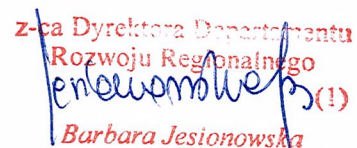 z-ca Dyrektora Departamentu
Rozwoju Regionalnego
(1)
Barbara Jesionowska